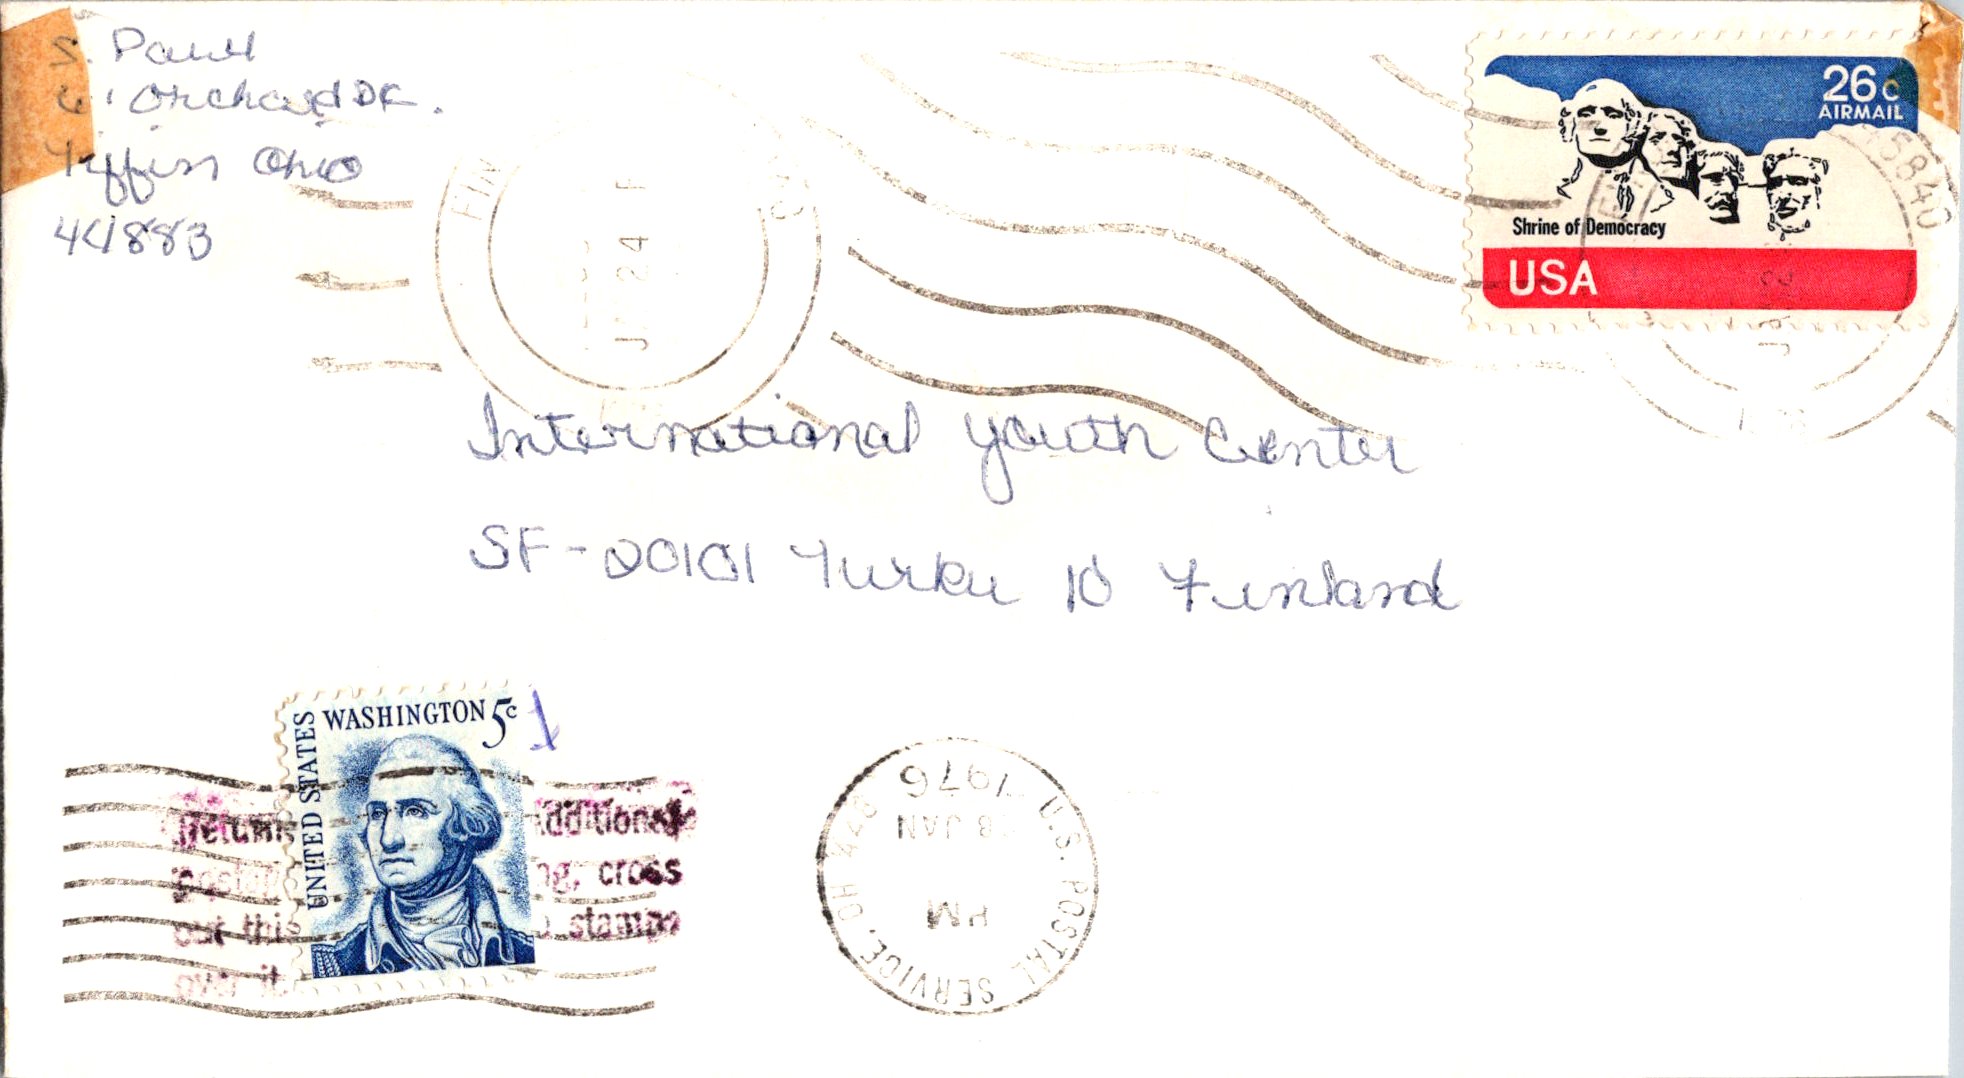 S. Paul
61 Orchard DR.
Tiffin Ohio
44883
FIN
JAN 24 P
26c
AIRMAIL
Shrine of Democracy
USA
45840
International Youth Center
SF-20101 Turku 10 Finland
WASHINGTON 5c
UNITED STATES
Return additional
cross
out this stamps
over it
U.S. POSTAL SERVICE, OH 448
28 JAN
1976
PM